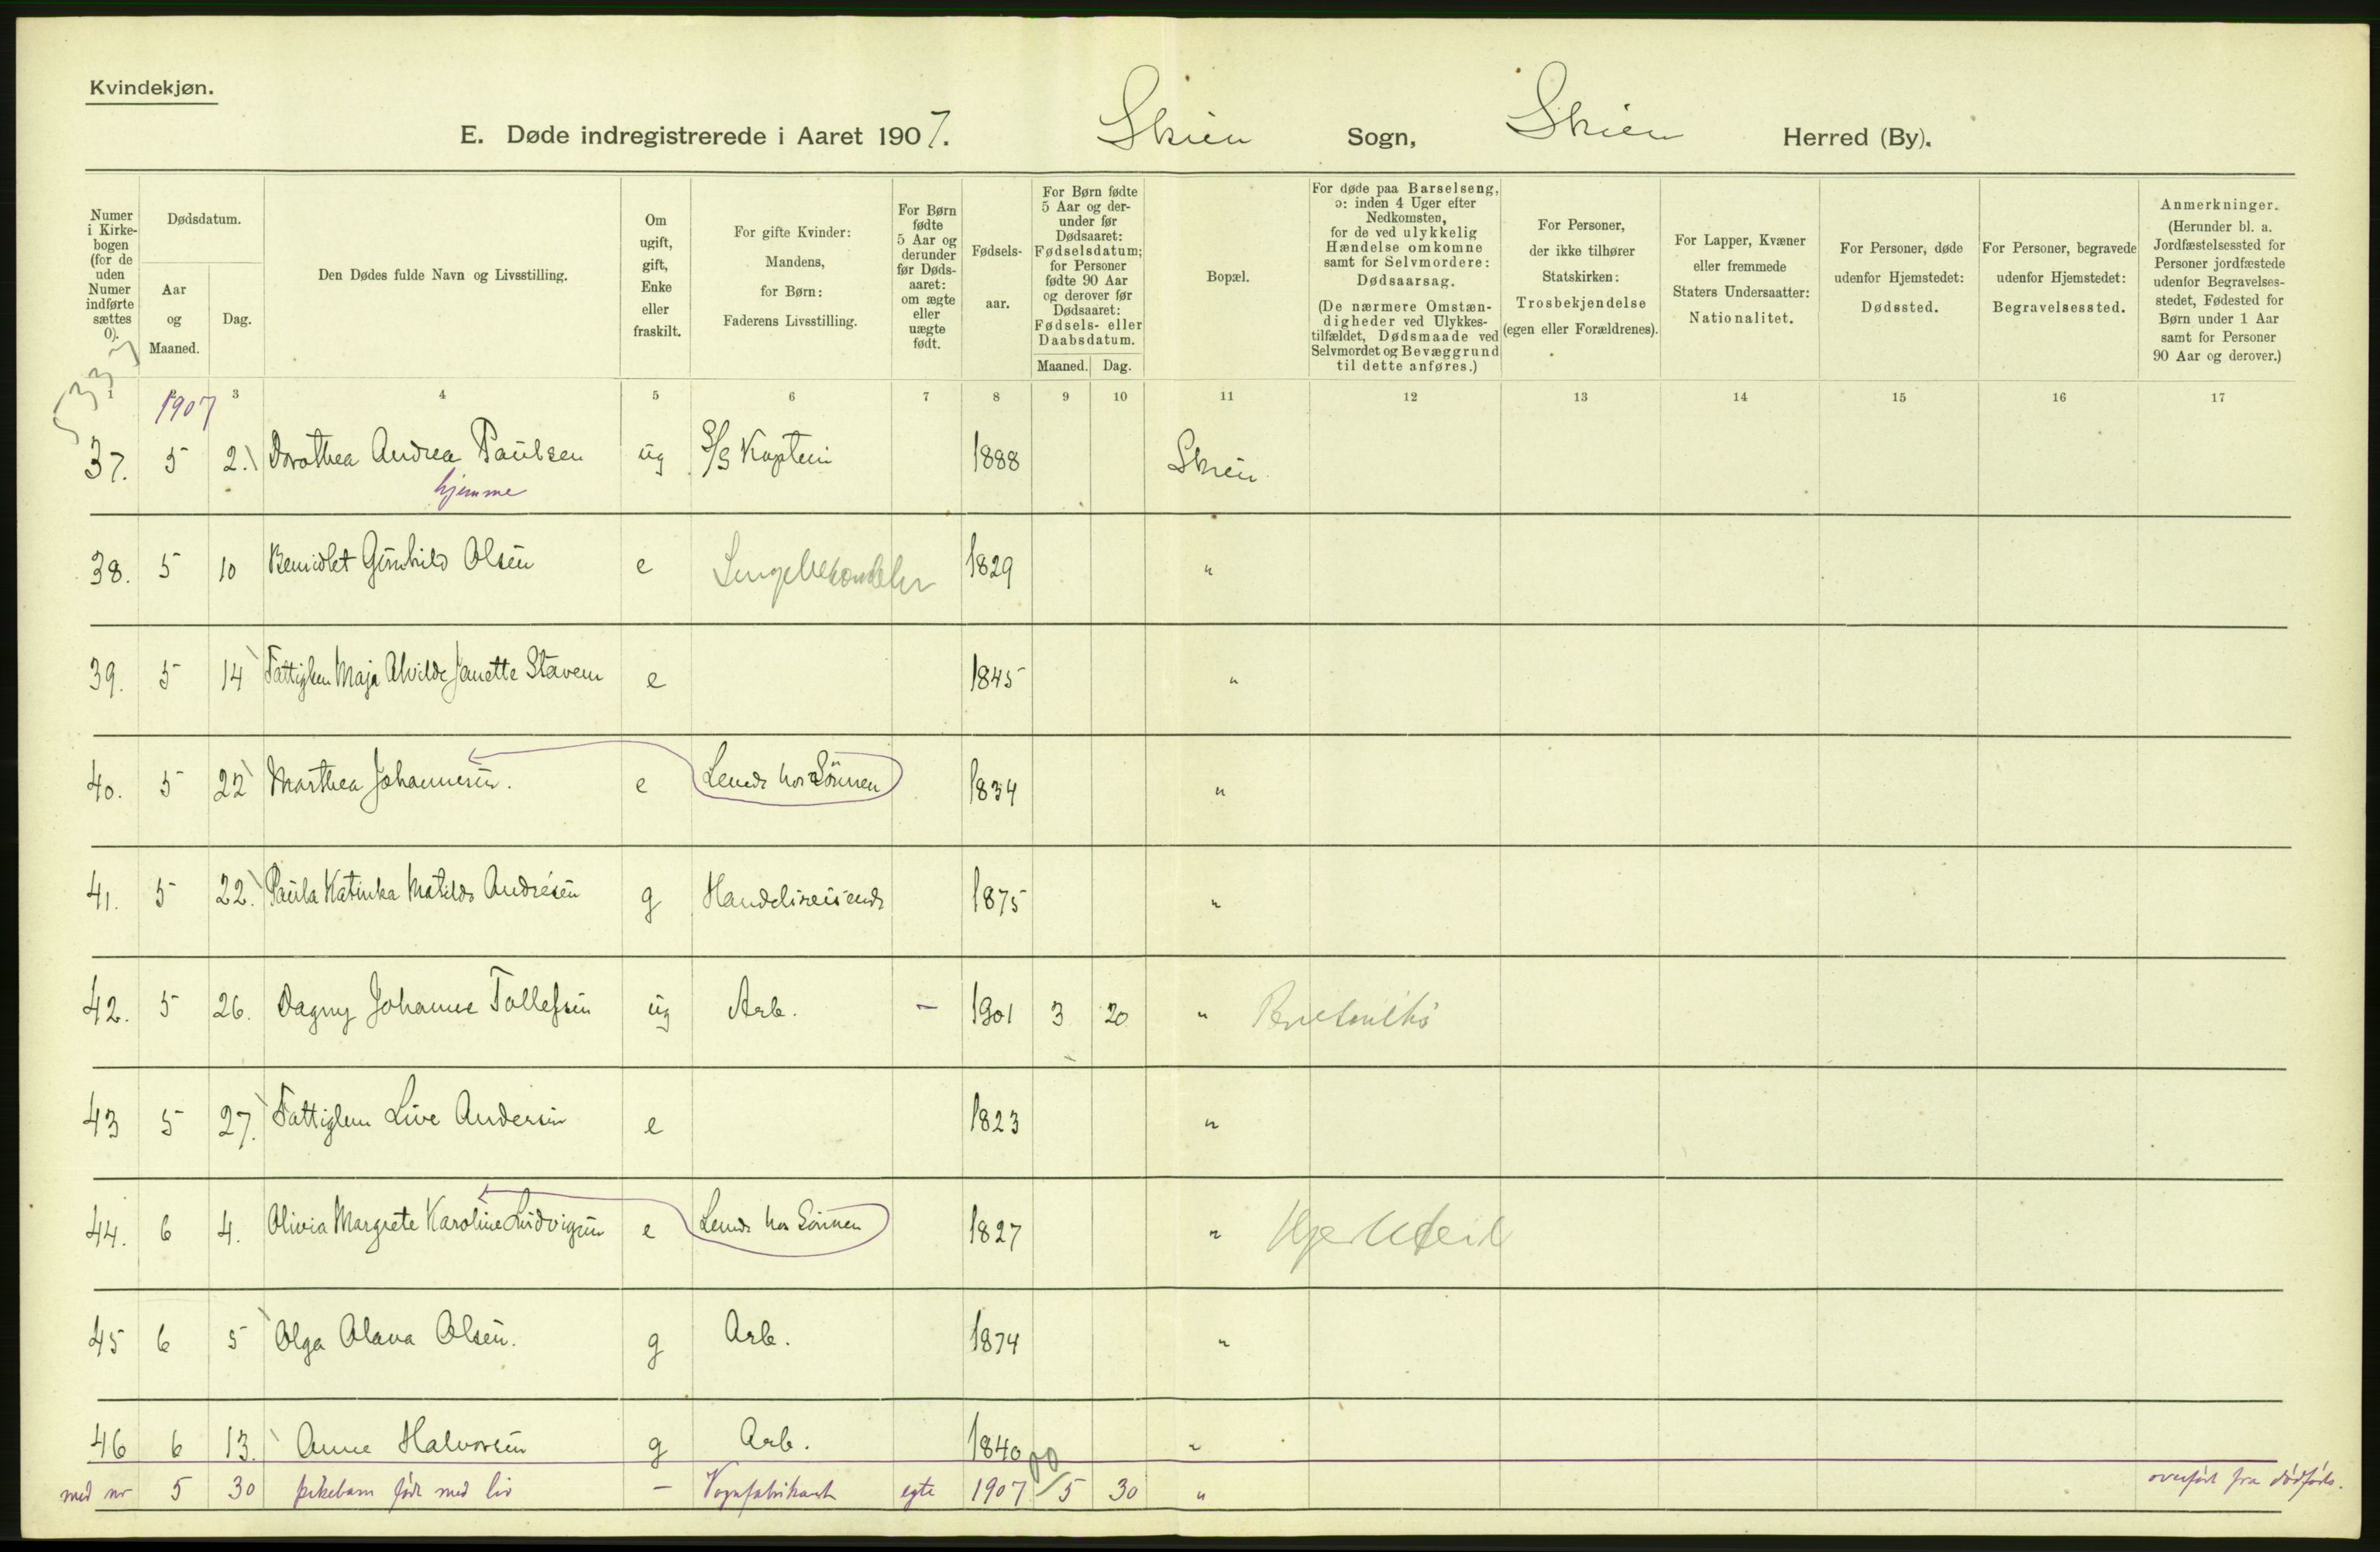 Kvindekjøn.
E. Døde indregistrerede i Aaret 1907. Skien Sogn, Skien Herred (By).
Numer i Kirkebogen (for de uden Numer indførte sættes 0).
Dødsdatum.
Aar og Maaned.
Dag.
Den Dødes fulde Navn og Livsstilling.
Om ugift, gift, Enke eller fraskilt.
For gifte Kvinder: Mandens, for Børn: Faderens Livsstilling.
For Børn fødte 5 Aar og derunder før Dødsaaret: om ægte eller uægte født.
Fødselsaar.
For Børn fødte 5 Aar og derunder før Dødsaaret: Fødselsdatum; for Personer fødte 90 Aar og derover før Dødsaaret: Fødsels- eller Daabsdatum.
Maaned. Dag.
Bopæl.
For døde paa Barselseng, ɔ: inden 4 Uger efter Nedkomsten, for de ved ulykkelig Hændelse omkomne samt for Selvmordere: Dødsaarsag.
(De nærmere Omstændigheder ved Ulykkestilfældet, Dødsmaade ved Selvmordet og Bevæggrund til dette anføres.)
For Personer, der ikke tilhører Statskirken: Trosbekjendelse (egen eller Forældrenes).
For Lapper, Kvæner eller fremmede Staters Undersaatter: Nationalitet.
For Personer, døde udenfor Hjemstedet: Dødssted.
For Personer, begravede udenfor Hjemstedet: Begravelsessted.
Anmerkninger. (Herunder bl. a. Jordfæstelsessted for Personer jordfæstede udenfor Begravelsesstedet, Fødested for Børn under 1 Aar samt for Personer 90 Aar og derover.)
1 3 4 5 6 7 8 9 10 11 12 13 14 15 16 17
1907
37. 5 2. Dorothea Andrea Paulsen ug S/S Kaptein 1888 Skien
hjemme
38. 5 10 Gunhild Olsen e 1829 "
39. 5 14 Fattiglem Maja Alvilde Janette Stavem e 1845 "
40. 5 22 Marthea Johannesen. e Levede hos Sönnen 1834 "
41. 5 22. Paula Katinka Matilde Andresen g Handelsreisende 1875 "
42. 5 26. Dagny Johanne Tollefsen ug Arb. – 1901 3 20 "
43 5 27. Fattiglem Live Andersen e 1823 "
44. 6 4. Olivia Margrete Karoline Ludvigsen e Levede hos Sönnen 1827 " Hjertefeil
45 6 5 Olga Olava Olsen. g Arb. 1874 "
46 6 13. Anne Halvorsen g Arb. 1840 "
5 30 pikebarn født med liv – Vognfabrikant egte 1907 5 30 " overført fra dødføds.